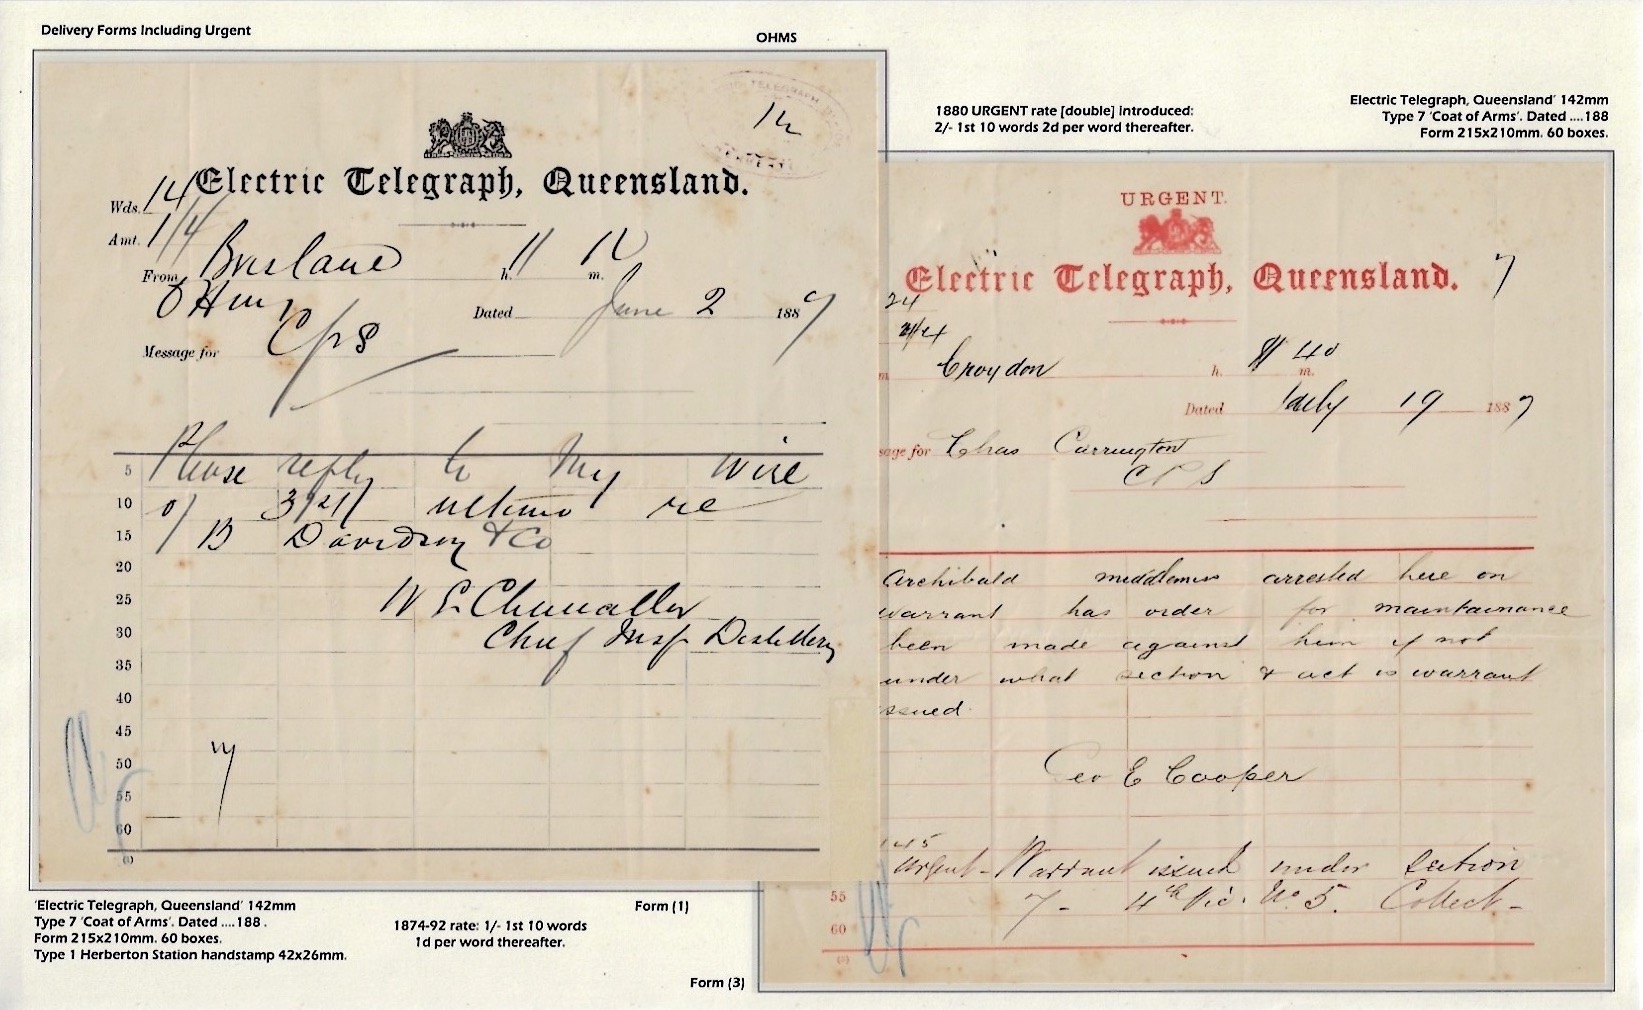 Delivery Forms Including Urgent
OHMS
12
Electric Telegraph, Queensland.
Wds. 14
Amt. 1/4
From Brisbane h. 11 m. 12
OHMS
Dated June 2 1887
Message for CPS
5 Please reply to my wire
10 of 31st ultimo re
15 B Davidson & Co
20
25
30 Chief Insp Distillery
35
40
45
50
55
60
(1)
'Electric Telegraph, Queensland' 142mm
Type 7 'Coat of Arms'. Dated ....188 .
Form 215x210mm. 60 boxes.
Type 1 Herberton Station handstamp 42x26mm.
1874-92 rate: 1/- 1st 10 words
1d per word thereafter.
Form (1)
Form (3)
1880 URGENT rate [double] introduced:
2/- 1st 10 words 2d per word thereafter.
Electric Telegraph, Queensland' 142mm
Type 7 'Coat of Arms'. Dated ....188
Form 215x210mm. 60 boxes.
URGENT.
Electric Telegraph, Queensland. 7
24
m Croydon h. 40 m.
Dated July 19 1887
sage for Chas Carrington
CPS
Archibald arrested here on
warrant has order for maintainance
been made against him if not
under what section & act is warrant
ssued
Geo E Cooper
urgent - Warrant issued under Section
7 - 4th Vic. No 5. Collect -
55
60
(3)